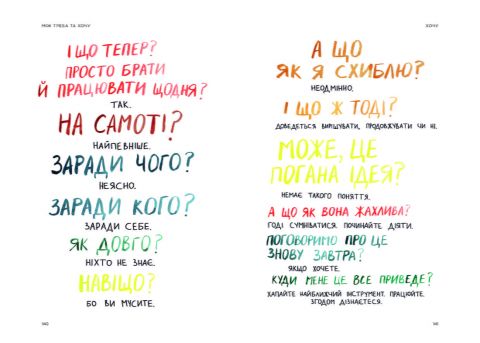 МОЖ ТРЕБА ТА ХОЧУ
І ЩО ТЕПЕР?
ПРОСТО БРАТИ
Й ПРАЦЮВАТИ ЩОДНЯ?
ТАК.
НА САМОТІ?
НАЙПЕВНІШЕ.
ЗАРАДИ ЧОГО?
НЕЯСНО.
ЗАРАДИ КОГО?
ЗАРАДИ СЕБЕ.
ЯК ДОВГО?
НІХТО НЕ ЗНАЄ.
НАВІЩО?
БО ВИ МУСИТЕ.
140
ХОЧУ
А ЩО
ЯК Я СХИБЛЮ?
НЕОДМІННО.
І ЩО Ж ТОДІ?
ДОВЕДЕТЬСЯ ВИРІШУВАТИ, ПРОДОВЖУВАТИ ЧИ НІ.
МОЖЕ, ЦЕ
ПОГАНА ІДЕЯ?
НЕМАЄ ТАКОГО ПОНЯТТЯ.
А ЩО ЯК ВОНА ЖАХЛИВА?
ГОДІ СУМНІВАТИСЯ. ПОЧИНАЙТЕ ДІЯТИ.
ПОГОВОРИМО ПРО ЦЕ
ЗНОВУ ЗАВТРА?
ЯКЩО ХОЧЕТЕ.
КУДИ МЕНЕ ЦЕ ВСЕ ПРИВЕДЕ?
ХАПАЙТЕ НАЙБЛИЖЧИЙ ІНСТРУМЕНТ. ПРАЦЮЙТЕ.
ЗГОДОМ ДІЗНАЄТЕСЯ.
141